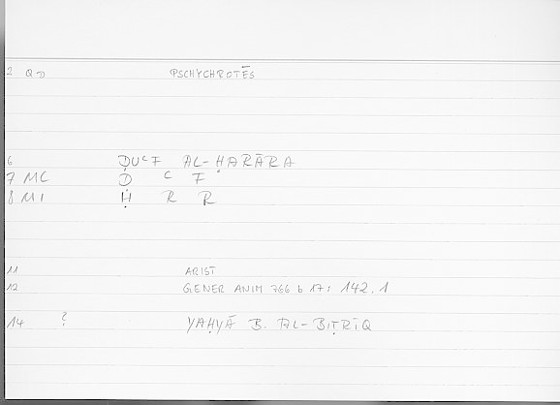 2 Q→ PSCHYCHROTĒS
6 ḌUᶜF AL-ḤARĀRA
7 MC Ḍ ᶜ F
8 MI Ḥ R R
11 ARIST
12 GENER ANIM 766 b 17: 142.1
14 ? YAḤYĀ B. AL-BIṬRĪQ